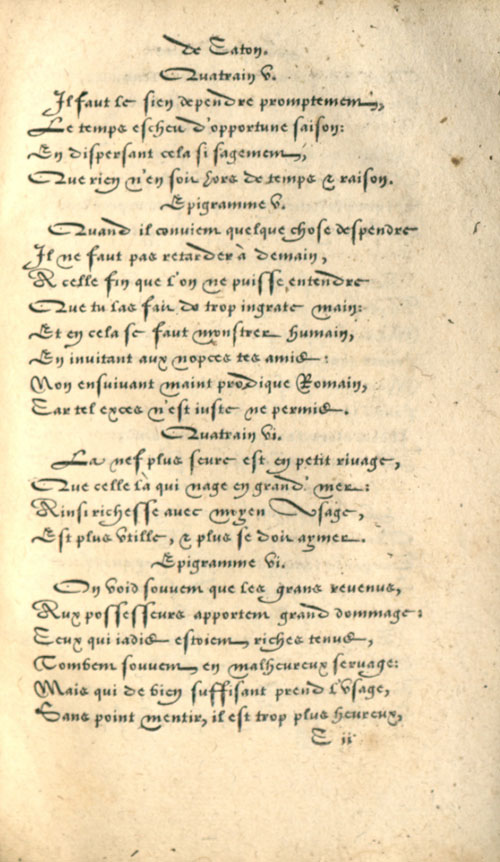 de Caton.
Quatrain v.
Il faut le sien dependre promptement,
Le temps escheu d'opportune saison:
En dispersant cela si sagement,
Que rien n'en soit hors de temps & raison.
Epigramme v.
Quand il convient quelque chose despendre
Il ne faut pas retarder à demain,
A celle fin que l'on ne puisse entendre
Que tu las fait de trop ingrate main:
Et en cela se faut monstrer humain,
En invitant aux nopces tes amis:
Non ensuivant maint prodique Romain,
Car tel exces n'est iuste ne permis.
Quatrain vi.
La nef plus seure est en petit rivage,
Que celle là qui nage en grand' mer:
Ainsi richesse avec moyen Vsage,
Est plus vtille, & plus se doit aymer.
Epigramme vi.
On void souvent que les grans revenus,
Aux possesseurs apportent grand dommage:
Ceux qui iadis estoient riches tenus,
Tombent souvent en malheureux servage:
Mais qui de bien suffisant prend l'Vsage,
Sans point mentir, il est trop plus heureux,
C ii